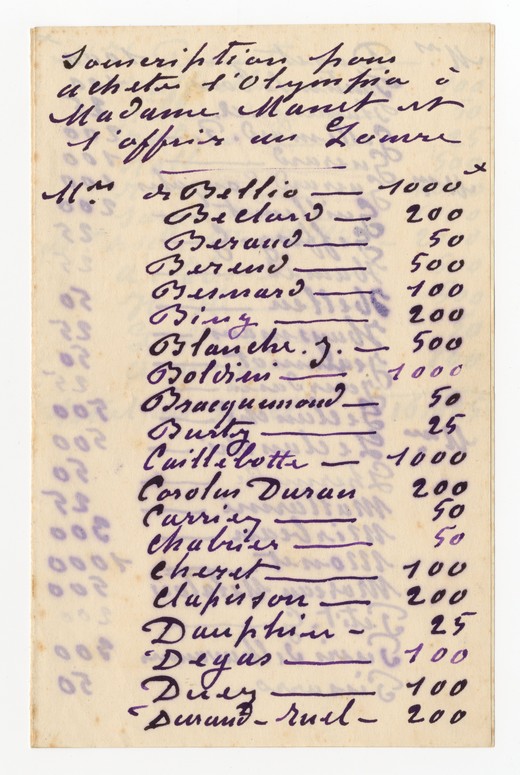 Souscription pour
acheter l'Olympia à
Madame Manet et
l'offrir au Louvre
Mrs de Bellio — 1000 x
Beclard — 200
Beraud — 50
Berend — 500
Besnard — 100
Bing — 200
Blanche. J. — 500
Boldini — 1000
Bracquemond — 50
Burty — 25
Caillebotte — 1000
Carolus Duran 200
Carriez — 50
Chabrier — 50
Cheret — 100
Clapisson — 200
Dauphin - 25
Degas — 100
Duez — 100
Durand-Ruel - 200